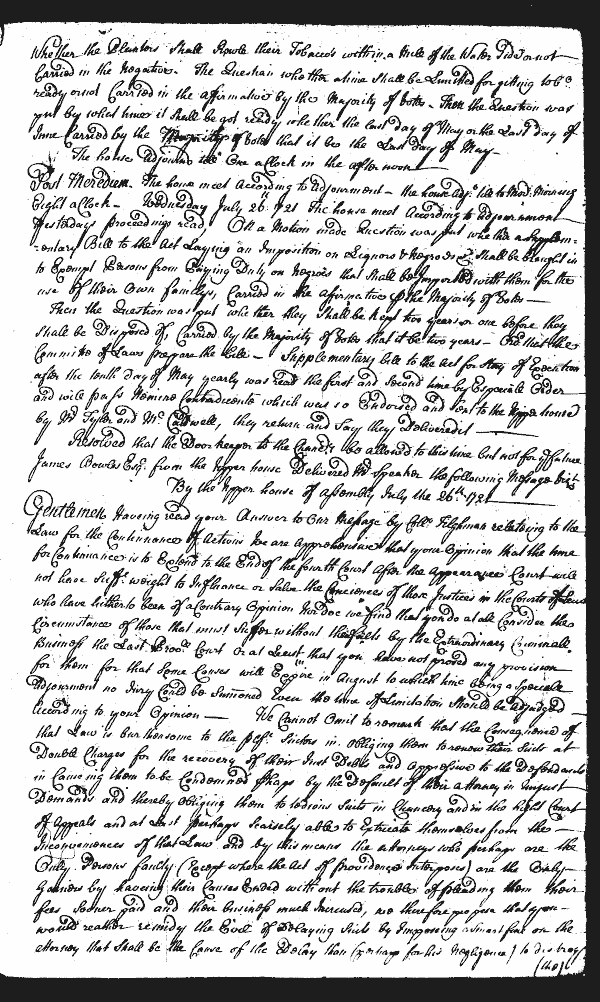 Whether the Planters Shall Provide their Tobacco's within a Mile of the Water Side or not
Carried in the Negative. The Question whether a time shall be Limitted for getting Tob.o
ready or not Carried in the affirmative by the Majority of Votes. Then the Question was
put by what time it shall be got ready whether the last day of May or the Last day of
June Carried by the Majority of Votes that it be the Last day of May
The house Adjourns till One a Clock in the afternoon
Post Meridiem. The house meet According to Adjournment the house Adj.s till to Mor. Morning
Eight a Clock Wednesday July 26 1721 The house meet According to adjournment
Yesterdays proceedings read, On a Motion made Question was put whether a Supplem-
-entary Bill to the Act Laying an Imposition on Liquors & Negroes &c. Shall be brought in
to Exempt Persons from Paying Duty on Negroes that Shall be Imported with them for the
use of their Own familys, Carried in the Affirmative by the Majority of Votes
Then the Question was put whether they Shall be kept two years or one before they
shall be Disposed of, Carried by the Majority of Votes that it be two years Ord that the
Committe of Laws prepare the bill Supplementary bill to the Act for Stay of Execution
after the tenth day of May yearly was read the first and Second time by Especial Order
and will pass Nemine Contradicente which was so Endorsed and Sent to the Upper house
by Mr Tyler and Mr. Caldwell, they return and Say they Delivered it
Resolved that the Door keeper to the Chanc.y be allowed to this time but not for ye future
James Bowles Esq.r from the Upper house Delivered Mr Speaker the following Message Vizt
By the Upper house of assembly July the 26th 1721
Gentlemen Having read your Answer to Our Message by Coll.o Tilghman relateing to the
Law for the Continuance of Actions We are Apprehensive that your Opinion that the time
for Continuance is to Extend to the End of the fourth Court After the Appearance Court will
not have Suff.t weight to Influence or Salve the Conciences of those Justices in the Courts of Law
who have hitherto been of a Contrary Opinion Nor doe we find that you do at all Consider the
Circumstance of those that must Suffer without by the Extraordinary Criminall
Business the Last Prov.l Court or at Least that you have not proved any provision
for them for that Some Causes will Expire in August to which time being a Speciall
Adjournment no Jury Could be Sumoned Even the time of Limitation Should be adjudged
According to your Opinion We Cannot Omit to remark that the Consequence of
that Law is burthensome to the Suitors in obliging them to renew their Suits at
Double Charges for the recovery of their Just Debts and Oppressive to the Defendants
in Causeing them to be Condemned by the Default of their attorney in August
Demands and thereby Obliging them to tedious Suits in Chancery and in the hight Court
of Appeals and at Last perhaps Scarsely able to Extricate themselves from the
Inconveniences of that Law and by this means the attorneys who perhaps are the
Only Persons faulty (Except where the Act of Providence Interposes) are the Only
Gainers by haveing their Causes Ended without the trouble of pleading them their
fees Sooner paid and their business much Increased, we therefore propose that you
would reather remidy the Evil of Delaying Suits by Imposing a Smart fine on the
Attorney that Shall be the Cause of the Delay than (perhaps for his Negligence) to destroy
(the)